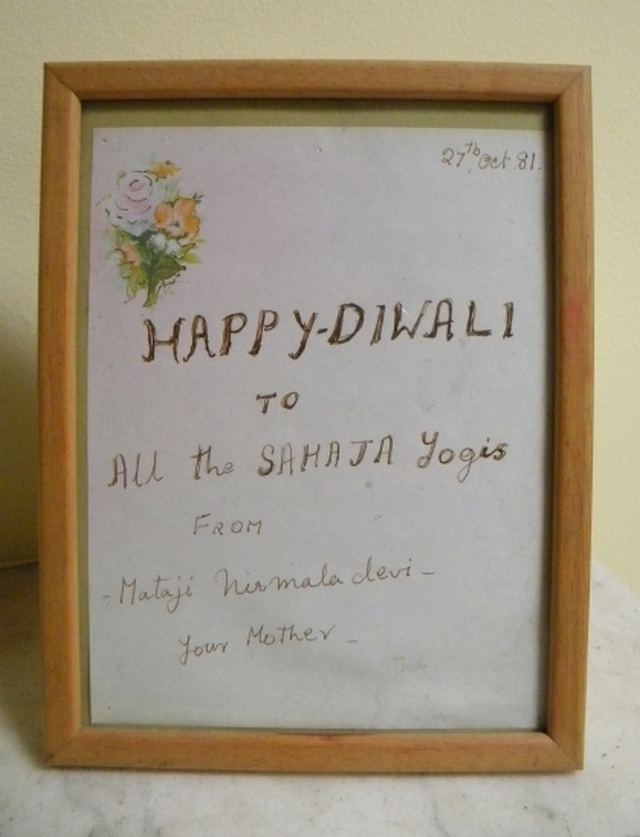 27th Oct. 81.
HAPPY-DIWALI
TO
All the SAHAJA Yogis
FROM
-Mataji Nirmala devi-
Your Mother-